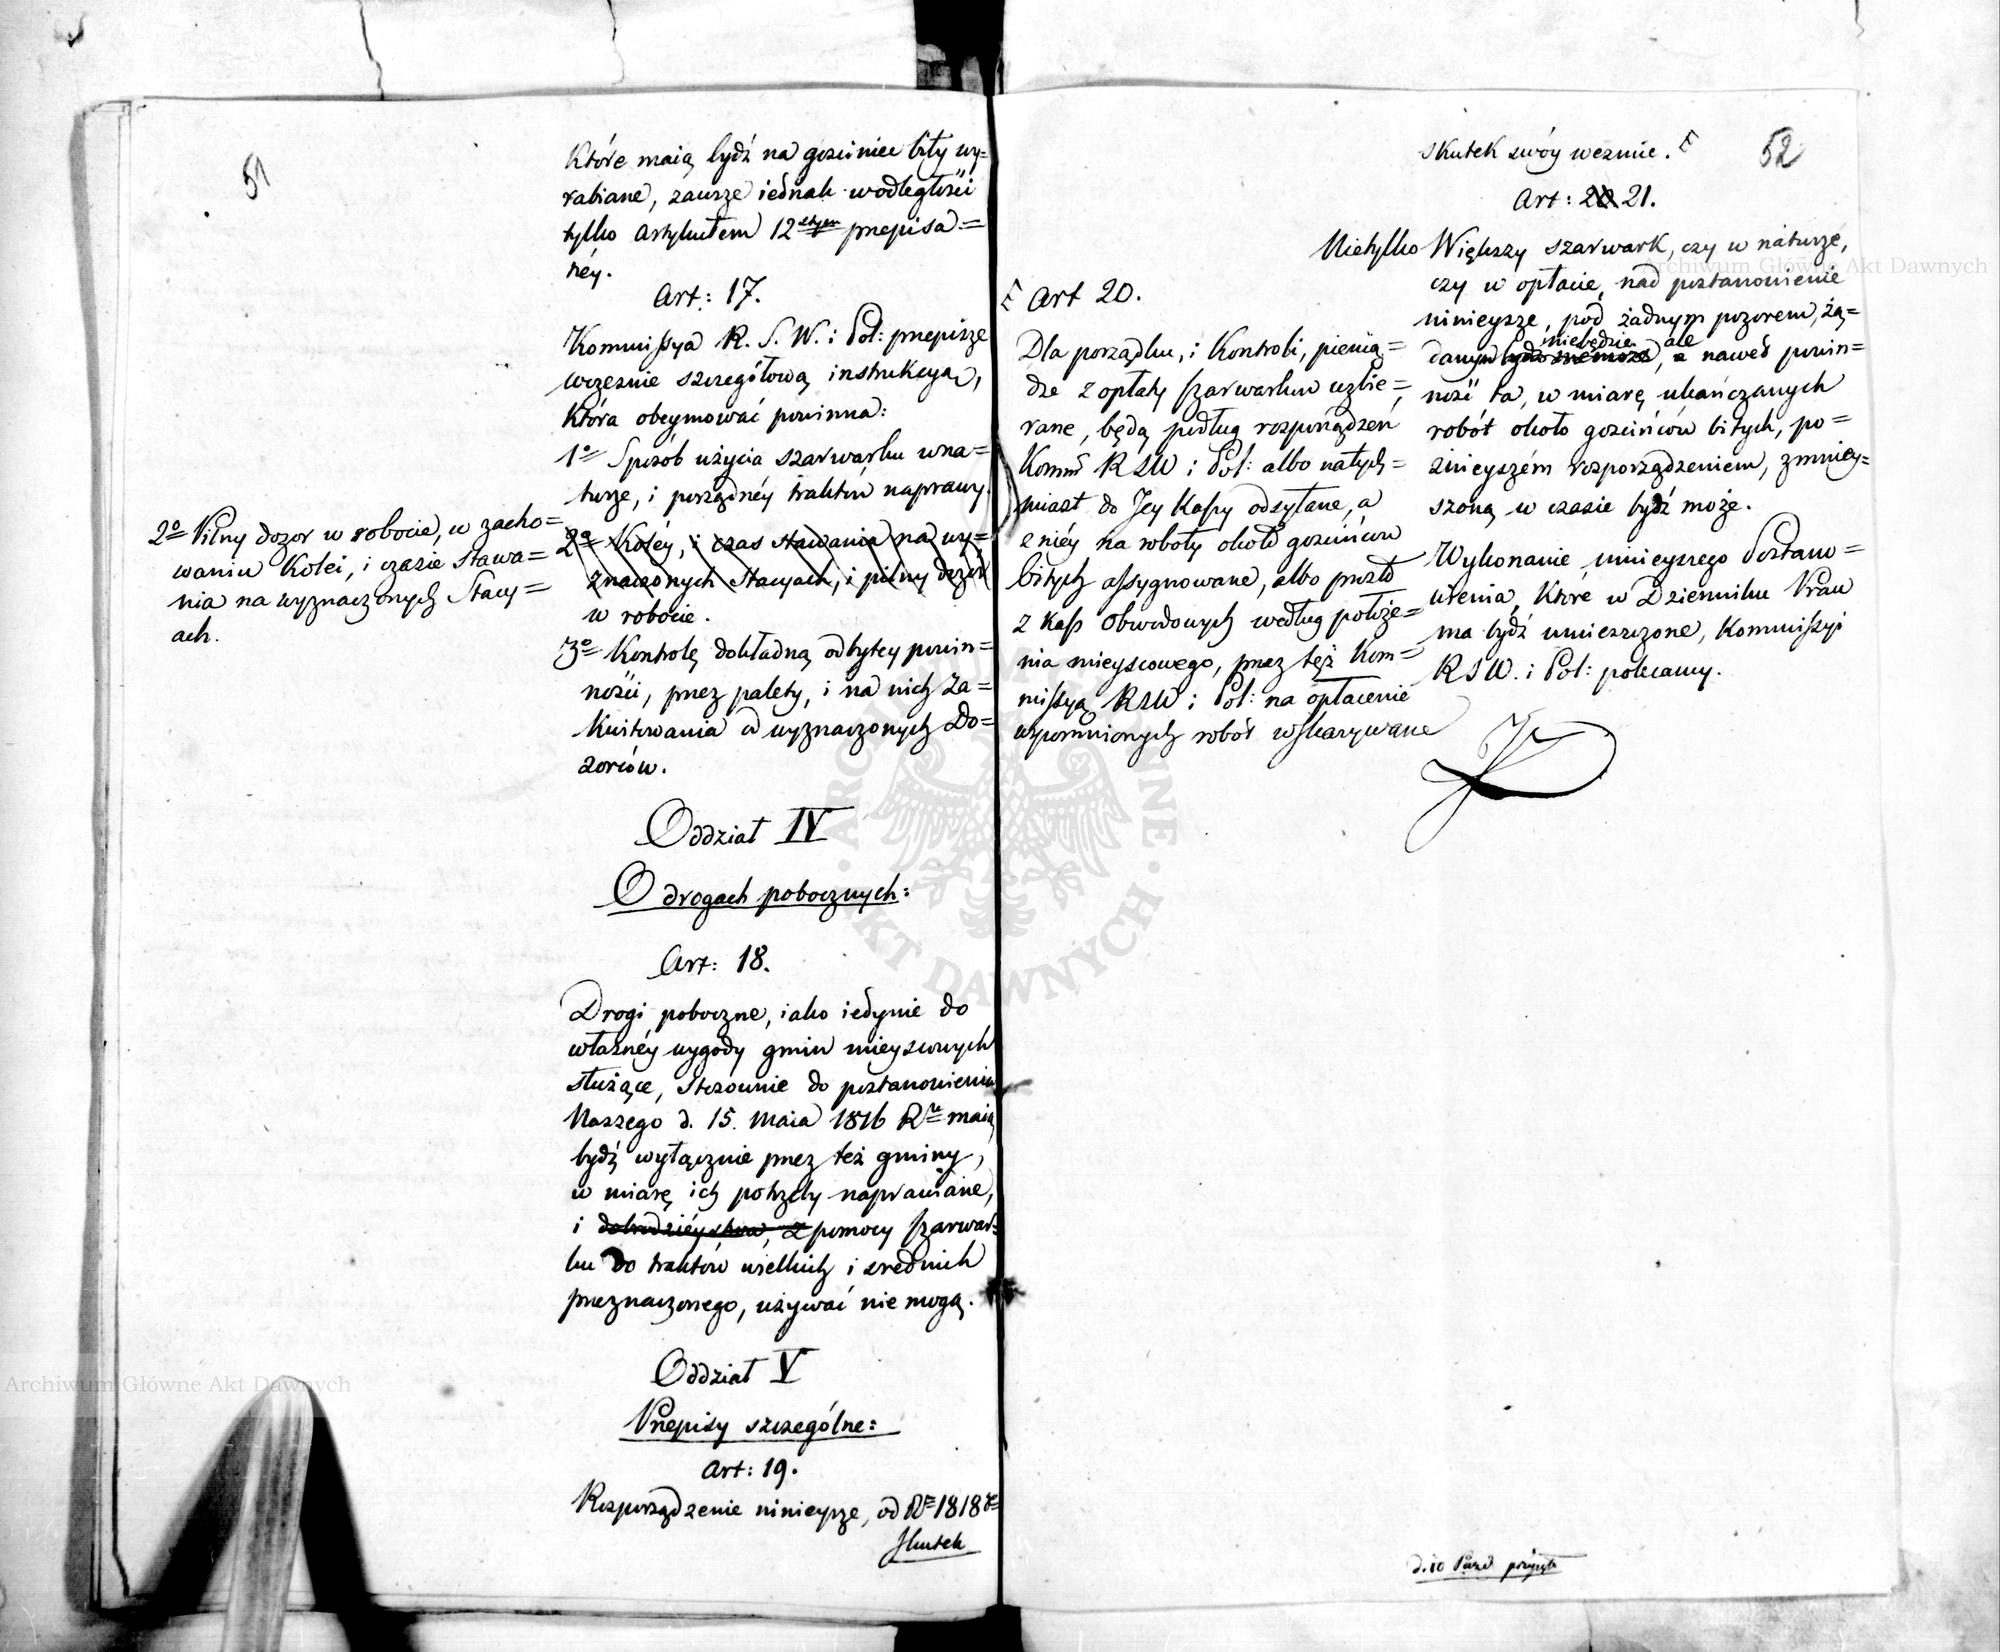 51
które maią bydź na gościniec bity wy=
rabiane, zawsze iednak w odległości
tylko artykułem 12stym przepisa=
néy.
Art: 17.
Kommissya R. S. W. i Pol: przepisze
wcześnie szczegółową instrukcyą,
która obeymować powinna:
1o Sposób użycia szarwarku w na=
turze, i porządnéy traktów naprawy.
2o Koléy, i czas stawania na wy=
znaczonych Stacyach, i pilny dozór
w robocie.
2o Pilny dozor w robocie, w zacho=
waniu Kolei, i czasie Stawa=
nia na wyznaczonych Stacy=
ach.
3o Kontrolę dokładną odbytey powin=
ności, przez palety, i na nich Za=
kwitowania od wyznaczonych Do=
zorców.
Oddział IV
O drogach pobocznych:
Art: 18.
Drogi poboczne, iako iedynie do
własnéy wygody gmin mieyscowych
służące, Stosownie do postanowienia
Naszego d. 15. Maia 1816 Ru maią
bydź wyłącznie przez też gminy,
w miarę ich potrzeby naprawiane,
i dobrodzieystwa, z pomocy szarwar=
ku do traktów wielkich i srednich
przeznaczonego, używać nie mogą.
Oddział V
Przepisy szczególne:
Art: 19.
Rozporządzenie ninieysze, od Ro 1818go
Skutek
52
skutek swóy wezmie.
Art 20.
Dla porządku, i Kontroli, pienią=
dze z opłaty szarwarku uzbie=
rane, będą podług rozporządzeń
Kommi RSW i Pol: albo natych=
miast do Jey Kassy odsyłane, a
z niéy na roboty około gościńców
bitych assygnowane, albo prosto
z Kass Obwodowych według położe=
nia mieyscowego, przez tęż Kom=
missyą RSW i Pol: na opłacenie
wspomnionych robót wskazywane
Art: 20 21.
Nietylko Większy szarwark, czy w náturze,
czy w opłacie, nad postanowienie
ninieysze, pod żadnym pozorem, żą=
niebędzie ale
danym bydź niemoże, a nawet powin=
ność ta, w miarę ukańczanych
robót około gościńców bitych, po=
źnieyszém rozporządzeniem, zmniey=
szoną w czasie bydź może.
Wykonanie ninieyszego Postano=
wienia, Które w Dzienniku Praw
ma bydź umieszczone, Kommissyi
RSW. i Pol: polecamy.
d. 10 Pazd przyięte
Archiwum Główne Akt Dawnych
Archiwum Główne Akt Dawnych
ARCHIWUM GŁÓWNE AKT DAWNYCH